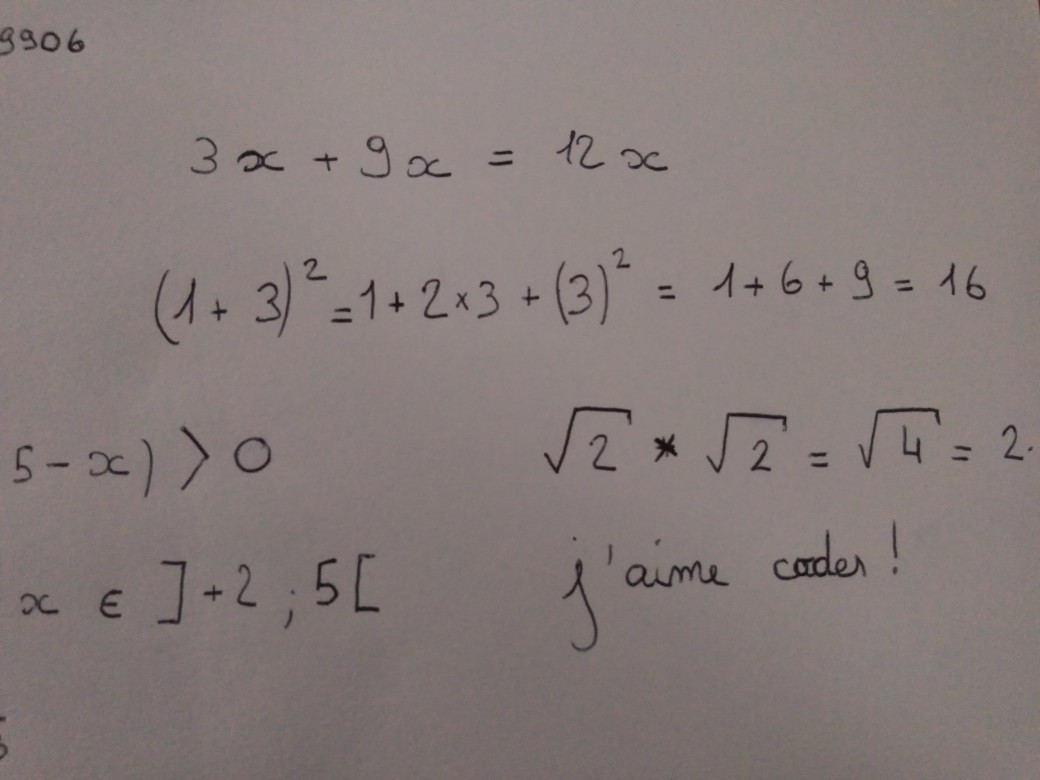 9906
3x + 9x = 12x
(1 + 3)² = 1 + 2×3 + (3)² = 1 + 6 + 9 = 16
5 - x) > 0
√2 * √2 = √4 = 2.
x ∈ ]+2 ; 5[
j'aime coder !